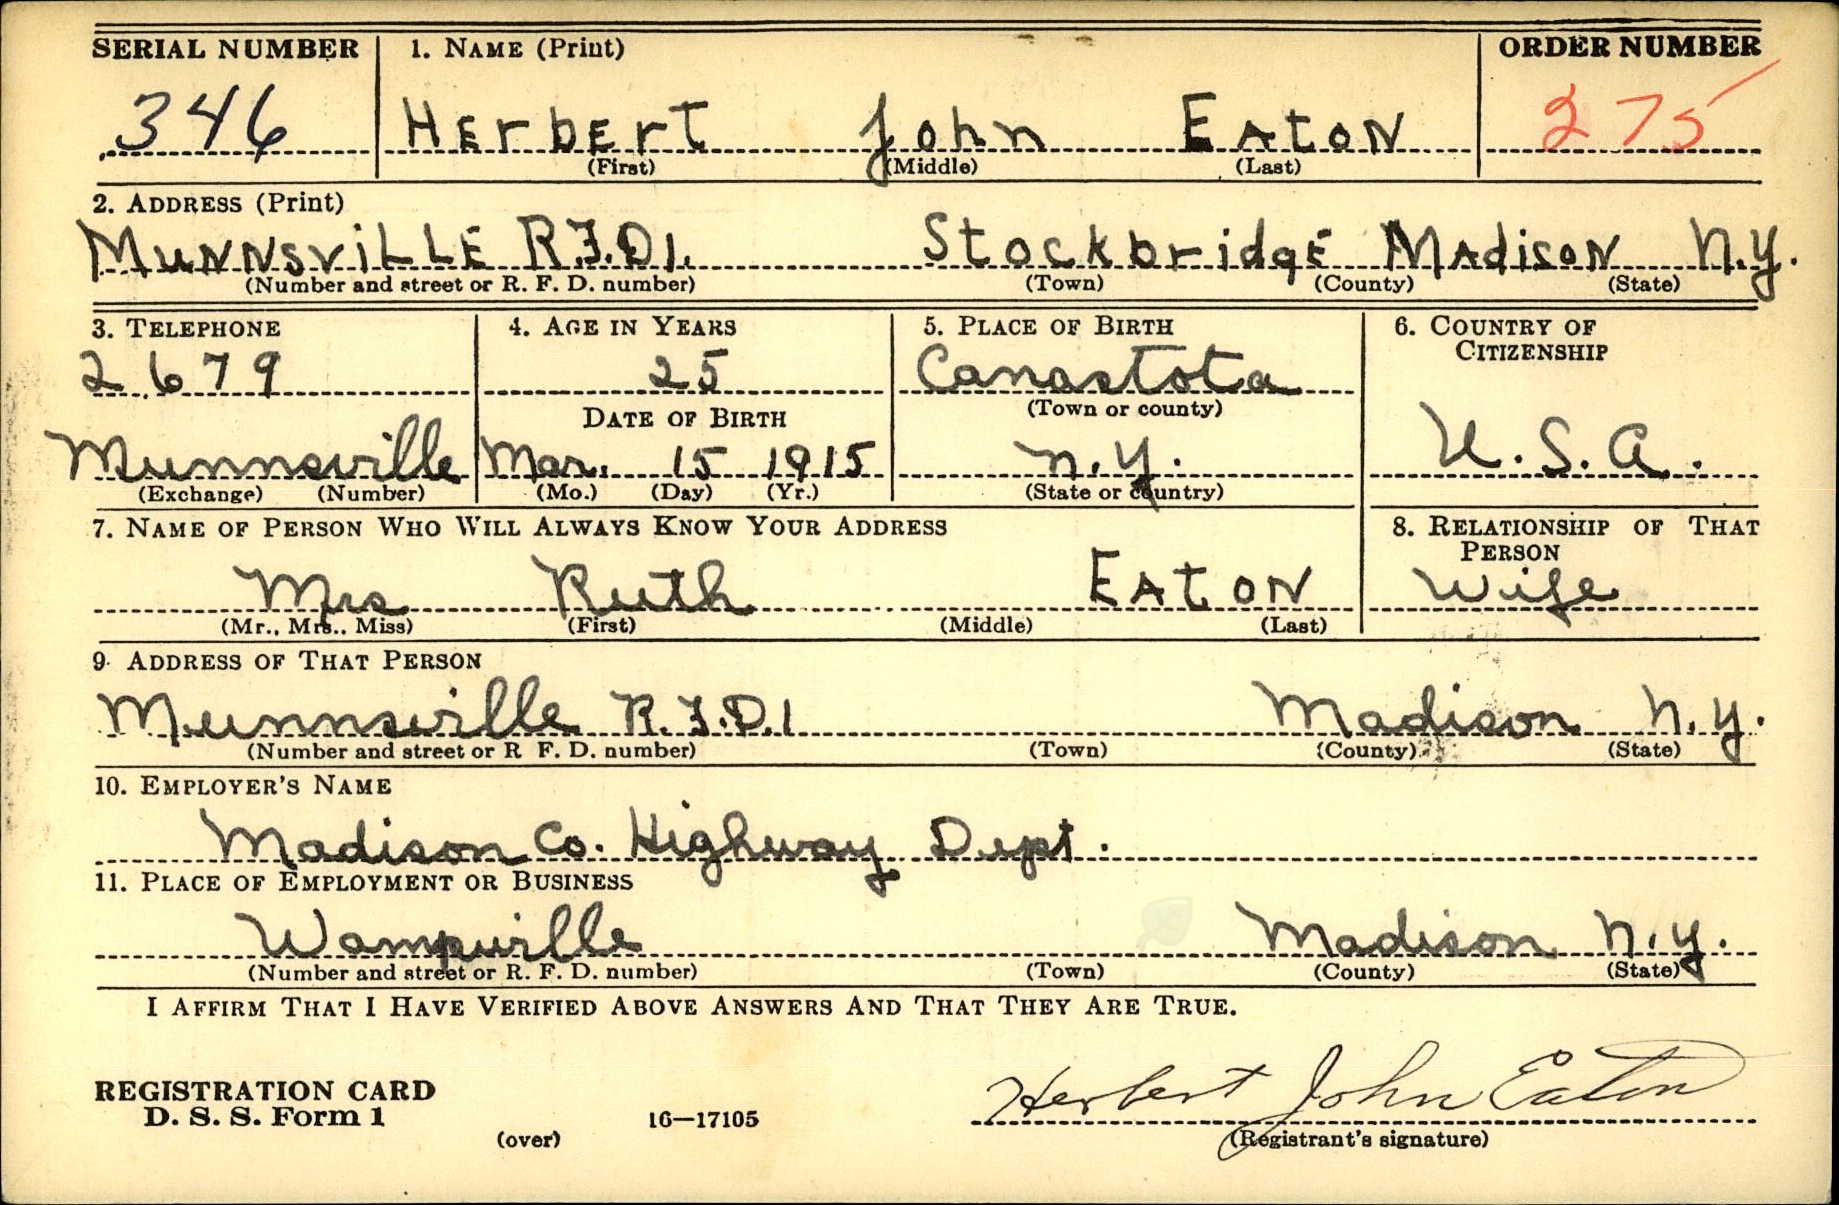 SERIAL NUMBER 1. NAME (Print) ORDER NUMBER
346 HErbErT John EAtoN 275
(First) (Middle) (Last)
2. ADDRESS (Print)
MuNNsviLLE R.F.D1. StockbridgE MAdisoN N.Y.
(Number and street or R. F. D. number) (Town) (County) (State)
3. TELEPHONE 4. AGE IN YEARS 5. PLACE OF BIRTH 6. COUNTRY OF
CITIZENSHIP
2679 25 Canastota
(Town or county)
DATE OF BIRTH
Munnsville Mar. 15 1915 N.Y. U.S.A.
(Exchange) (Number) (Mo.) (Day) (Yr.) (State or country)
7. NAME OF PERSON WHO WILL ALWAYS KNOW YOUR ADDRESS 8. RELATIONSHIP OF THAT
PERSON
Mrs Ruth EAtoN Wife
(Mr., Mrs., Miss) (First) (Middle) (Last)
9. ADDRESS OF THAT PERSON
Munnsville R.F.D.1 Madison N.Y.
(Number and street or R F. D. number) (Town) (County) (State)
10. EMPLOYER'S NAME
Madison Co. Highway Dept.
11. PLACE OF EMPLOYMENT OR BUSINESS
Wampville Madison N.Y.
(Number and street or R. F. D. number) (Town) (County) (State)
I AFFIRM THAT I HAVE VERIFIED ABOVE ANSWERS AND THAT THEY ARE TRUE.
REGISTRATION CARD Herbert John Eaton
D. S. S. Form 1 16—17105
(over) (Registrant's signature)